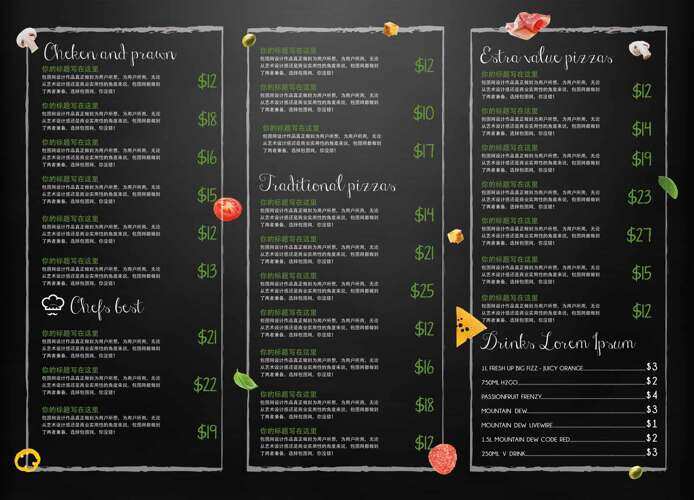 Chcken and prawn
你的标题写在这里
包图网设计作品真正做到为用户所想，为用户所用，无论
从艺术设计感还是商业实用性的角度来说，包图网都做到
了两者兼备。选择包图网，你没错！
$12
你的标题写在这里
包图网设计作品真正做到为用户所想，为用户所用，无论
从艺术设计感还是商业实用性的角度来说，包图网都做到
了两者兼备。选择包图网，你没错！
$18
你的标题写在这里
包图网设计作品真正做到为用户所想，为用户所用，无论
从艺术设计感还是商业实用性的角度来说，包图网都做到
了两者兼备。选择包图网，你没错！
$16
你的标题写在这里
包图网设计作品真正做到为用户所想，为用户所用，无论
从艺术设计感还是商业实用性的角度来说，包图网都做到
了两者兼备。选择包图网，你没错！
$15
你的标题写在这里
包图网设计作品真正做到为用户所想，为用户所用，无论
从艺术设计感还是商业实用性的角度来说，包图网都做到
了两者兼备。选择包图网，你没错！
$12
你的标题写在这里
包图网设计作品真正做到为用户所想，为用户所用，无论
从艺术设计感还是商业实用性的角度来说，包图网都做到
了两者兼备。选择包图网，你没错！
$13
Chefs best
你的标题写在这里
包图网设计作品真正做到为用户所想，为用户所用，无论
从艺术设计感还是商业实用性的角度来说，包图网都做到
了两者兼备。选择包图网，你没错！
$21
你的标题写在这里
包图网设计作品真正做到为用户所想，为用户所用，无论
从艺术设计感还是商业实用性的角度来说，包图网都做到
了两者兼备。选择包图网，你没错！
$22
你的标题写在这里
包图网设计作品真正做到为用户所想，为用户所用，无论
从艺术设计感还是商业实用性的角度来说，包图网都做到
了两者兼备。选择包图网，你没错！
$19
你的标题写在这里
包图网设计作品真正做到为用户所想，为用户所用，无论
从艺术设计感还是商业实用性的角度来说，包图网都做到
了两者兼备。选择包图网，你没错！
$12
你的标题写在这里
包图网设计作品真正做到为用户所想，为用户所用，无论
从艺术设计感还是商业实用性的角度来说，包图网都做到
了两者兼备。选择包图网，你没错！
$10
你的标题写在这里
包图网设计作品真正做到为用户所想，为用户所用，无论
从艺术设计感还是商业实用性的角度来说，包图网都做到
了两者兼备。选择包图网，你没错！
$17
Traditional pizzas
你的标题写在这里
包图网设计作品真正做到为用户所想，为用户所用，无论
从艺术设计感还是商业实用性的角度来说，包图网都做到
了两者兼备。选择包图网，你没错！
$14
你的标题写在这里
包图网设计作品真正做到为用户所想，为用户所用，无论
从艺术设计感还是商业实用性的角度来说，包图网都做到
了两者兼备。选择包图网，你没错！
$21
你的标题写在这里
包图网设计作品真正做到为用户所想，为用户所用，无论
从艺术设计感还是商业实用性的角度来说，包图网都做到
了两者兼备。选择包图网，你没错！
$25
你的标题写在这里
包图网设计作品真正做到为用户所想，为用户所用，无论
从艺术设计感还是商业实用性的角度来说，包图网都做到
了两者兼备。选择包图网，你没错！
$12
你的标题写在这里
包图网设计作品真正做到为用户所想，为用户所用，无论
从艺术设计感还是商业实用性的角度来说，包图网都做到
了两者兼备。选择包图网，你没错！
$16
你的标题写在这里
包图网设计作品真正做到为用户所想，为用户所用，无论
从艺术设计感还是商业实用性的角度来说，包图网都做到
了两者兼备。选择包图网，你没错！
$18
你的标题写在这里
包图网设计作品真正做到为用户所想，为用户所用，无论
从艺术设计感还是商业实用性的角度来说，包图网都做到
了两者兼备。选择包图网，你没错！
$12
Estra value pizzas
你的标题写在这里
包图网设计作品真正做到为用户所想，为用户所用，无论
从艺术设计感还是商业实用性的角度来说，包图网都做到
了两者兼备。选择包图网，你没错！
$12
你的标题写在这里
包图网设计作品真正做到为用户所想，为用户所用，无论
从艺术设计感还是商业实用性的角度来说，包图网都做到
了两者兼备。选择包图网，你没错！
$14
你的标题写在这里
包图网设计作品真正做到为用户所想，为用户所用，无论
从艺术设计感还是商业实用性的角度来说，包图网都做到
了两者兼备。选择包图网，你没错！
$19
你的标题写在这里
包图网设计作品真正做到为用户所想，为用户所用，无论
从艺术设计感还是商业实用性的角度来说，包图网都做到
了两者兼备。选择包图网，你没错！
$23
你的标题写在这里
包图网设计作品真正做到为用户所想，为用户所用，无论
从艺术设计感还是商业实用性的角度来说，包图网都做到
了两者兼备。选择包图网，你没错！
$27
你的标题写在这里
包图网设计作品真正做到为用户所想，为用户所用，无论
从艺术设计感还是商业实用性的角度来说，包图网都做到
了两者兼备。选择包图网，你没错！
$15
你的标题写在这里
包图网设计作品真正做到为用户所想，为用户所用，无论
从艺术设计感还是商业实用性的角度来说，包图网都做到
了两者兼备。选择包图网，你没错！
$12
Drinks Lorem Ipsum
1L FRESH UP BIG FIZZ - JUICY ORANGE $3
750ML H2GO $2
PASSIONFRUIT FRENZY $4
MOUNTAIN DEW $3
MOUNTAIN DEW LIVEWIRE $1
1.5L MOUNTAIN DEW CODE RED $2
250ML V DRINK $3